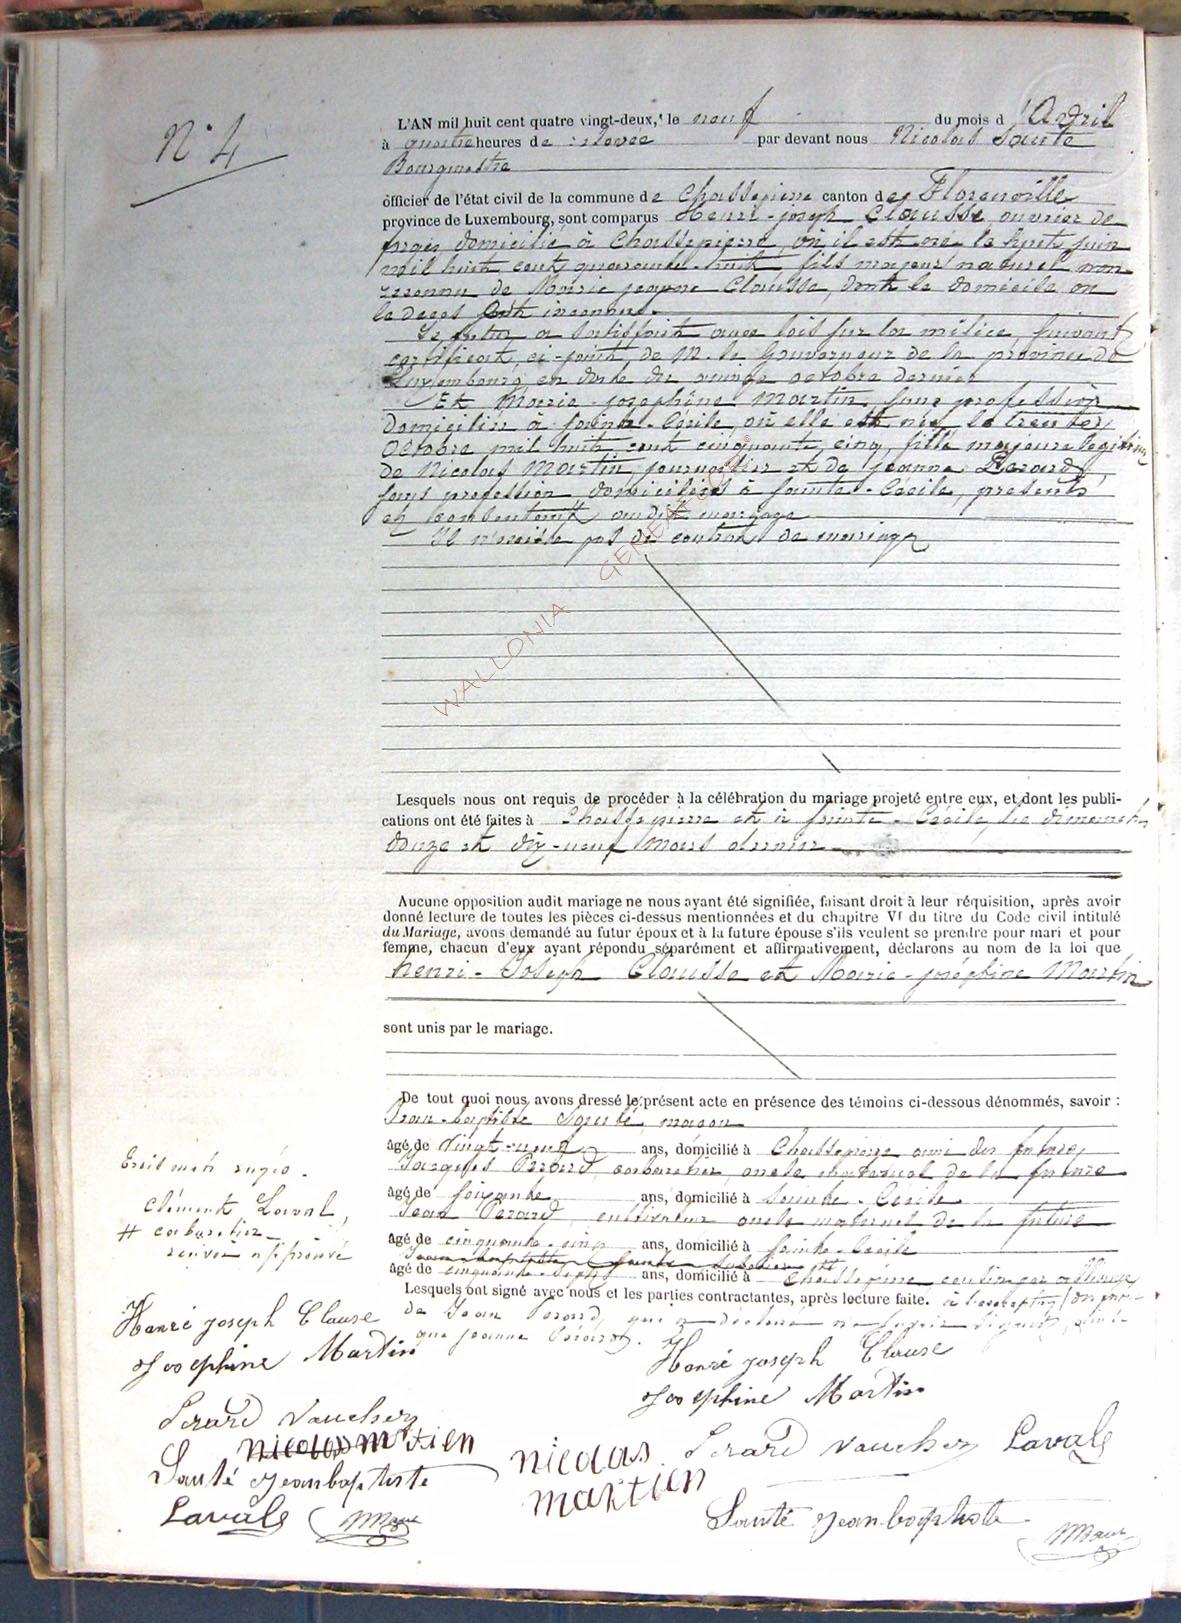 N° 4
L'AN mil huit cent quatre vingt-deux, le neuf du mois d'Avril
à quatre heures de relevée par devant nous Nicolas Santé
Bourgmestre
officier de l'état civil de la commune de Chassepierre canton de Florenville
province de Luxembourg, sont comparus Henri-joseph Clausse, ouvrier de
forges domicilié à Chassepierre, où il est né le huit juin
mil huit cent quarante-huit fils majeur naturel non
reconnu de Marie jeanne Clausse, dont le domicile ou
le décès sont inconnus.
Le futur a satisfait aux lois sur la milice, suivant
certificat, ci-joint, de M. le Gouverneur de la province de
Luxembourg en date du quinze octobre dernier
Et Marie-josephine Martin, sans profession
domiciliée à Sainte-Cécile, où elle est née le trente
Octobre mil huit cent cinquante cinq, fille majeure légitime
de Nicolas Martin, journalier et de jeanne Perard,
sans profession, domiciliés à Sainte-Cécile, présents
et consentant audit mariage
Il n'existe pas de contrat de mariage
WALLONIA GENEALOGY
Lesquels nous ont requis de procéder à la célébration du mariage projeté entre eux, et dont les publi-
cations ont été faites à Chassepierre et à Sainte-Cécile, les dimanches
douze et dix-neuf mars dernier
Aucune opposition audit mariage ne nous ayant été signifiée, faisant droit à leur réquisition, après avoir
donné lecture de toutes les pièces ci-dessus mentionnées et du chapitre VI du titre du Code civil intitulé
du Mariage, avons demandé au futur époux et à la future épouse s'ils veulent se prendre pour mari et pour
femme, chacun d'eux ayant répondu séparément et affirmativement, déclarons au nom de la loi que
henri-Joseph Clausse et Marie-joséphine Martin
sont unis par le mariage.
De tout quoi nous avons dressé le présent acte en présence des témoins ci-dessous dénommés, savoir :
Jean-baptiste Santé, maçon
âgé de vingt-neuf ans, domicilié à Chassepierre ami des futurs,
Jacques Perard, cabaretier, oncle maternel de la future
âgé de soixante ans, domicilié à Sainte-Cécile
Jean Perard, cultivateur oncle maternel de la future
âgé de cinquante-cinq ans, domicilié à Sainte-Cécile
Jean-baptiste Santé
âgé de cinquante-sept ans, domicilié à Chassepierre cousin par alliance
Lesquels ont signé avec nous et les parties contractantes, après lecture faite. à l'exception
de Jean Perard, qui a déclaré ne savoir signer, ainsi
que jeanne Perard.
Clément Laval,
# cabaretier
renvoi approuvé
Hanré joseph Clause
Josephine Martin
Perard Vaucher
Nicolas Martien
Santé Jeanbaptiste
Lavale
Hanré joseph Clause
Josephine Martin
nicolas
martien
Perard Vaucher Lavale
Santé Jeanbaptiste